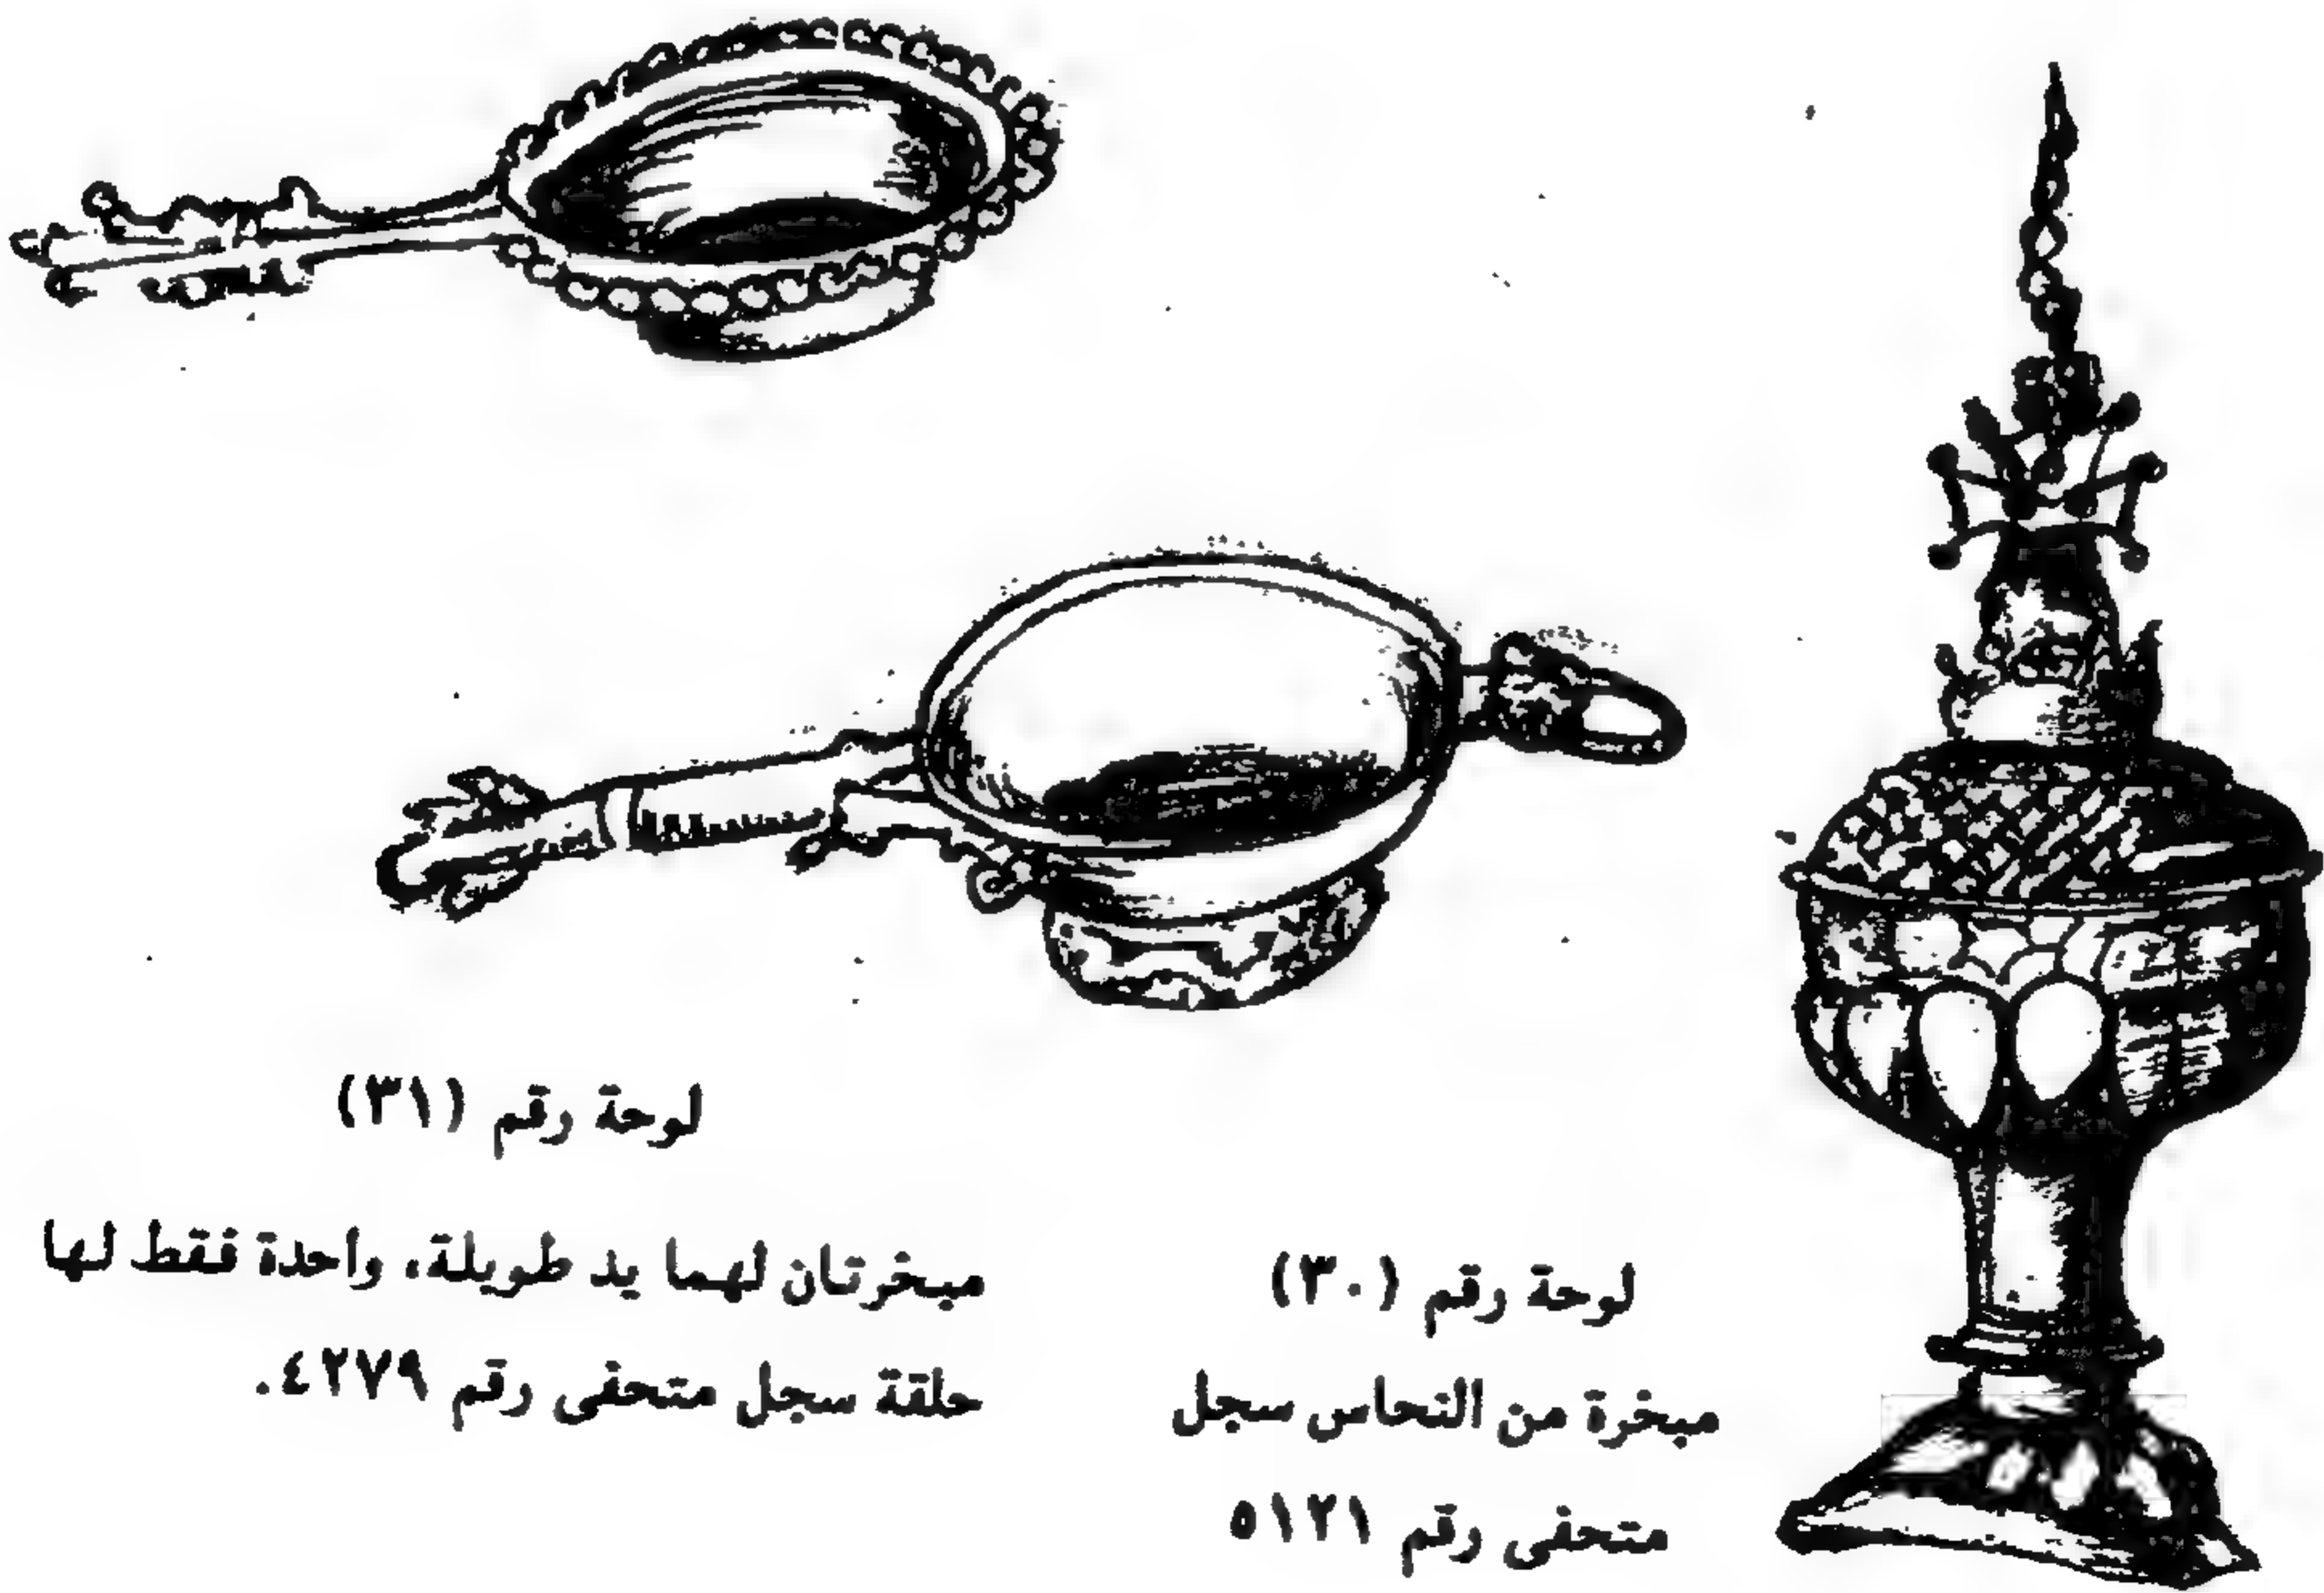 لوحة رقم (٣٠)
مبخرة من النحاس سجل
متحفى رقم ٥١٢١
لوحة رقم (٣١)
مبخرتان لهما يد طويلة، واحدة فقط لها
حلقة سجل متحفى رقم ٤٢٧٩.